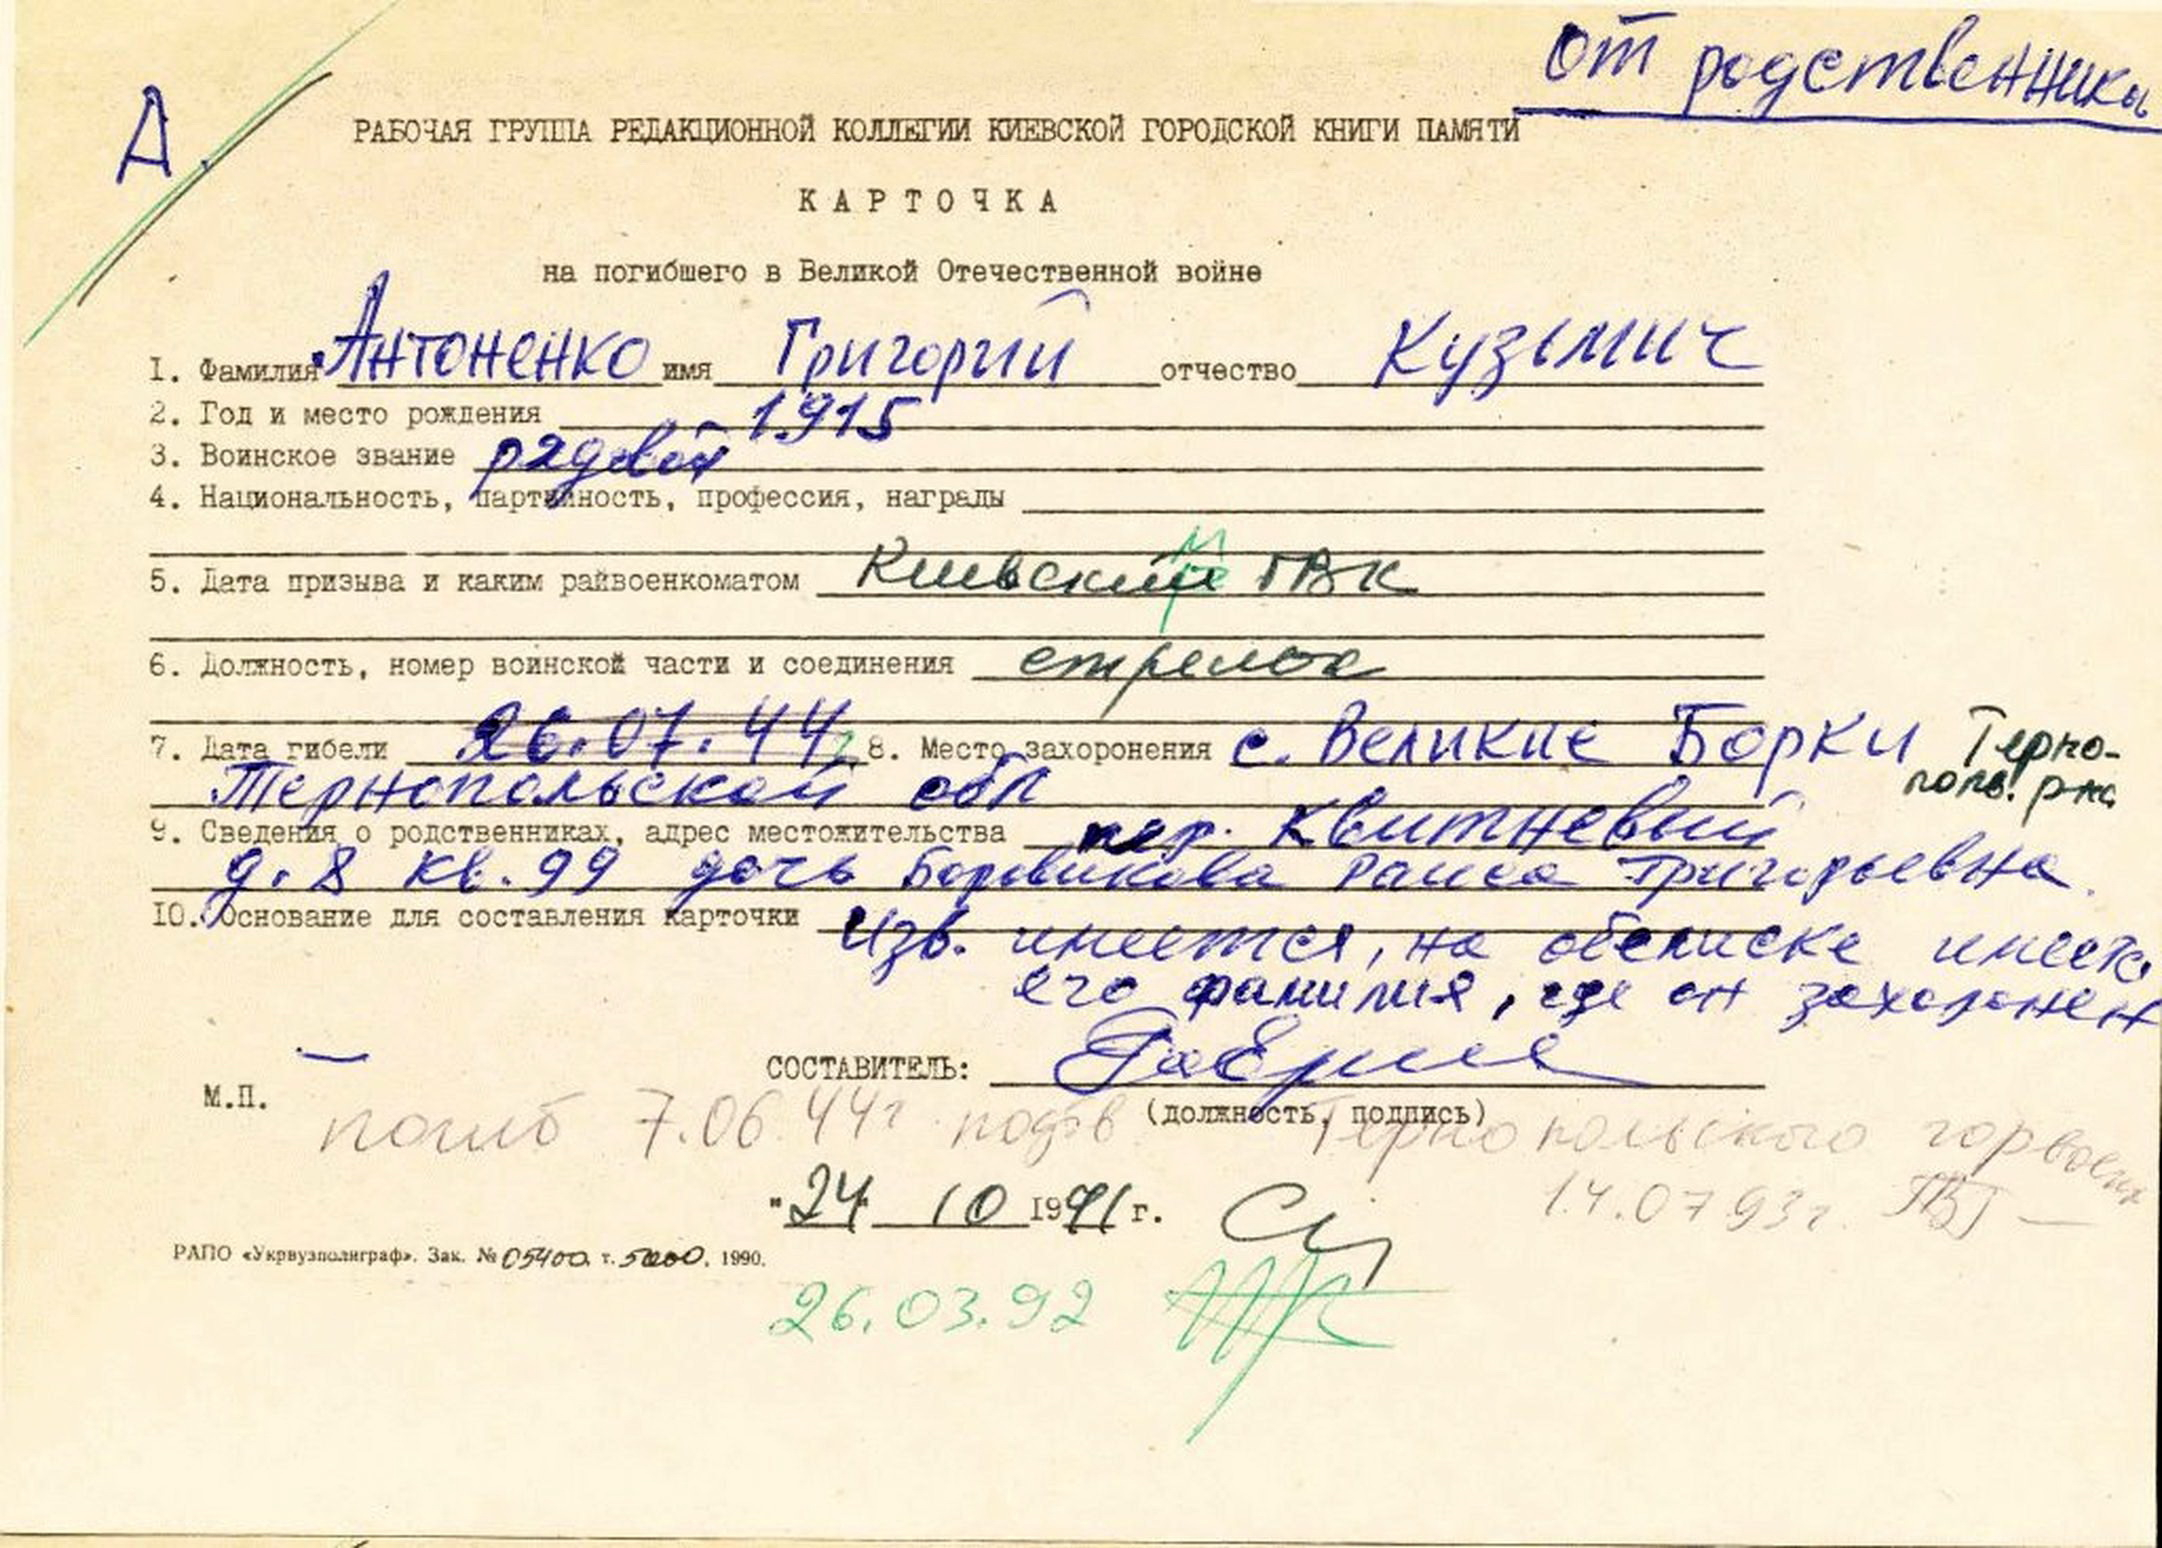 от родственника
А.
РАБОЧАЯ ГРУППА РЕДАКЦИОННОЙ КОЛЛЕГИИ КИЕВСКОЙ ГОРОДСКОЙ КНИГИ ПАМЯТИ
КАРТОЧКА
на погибшего в Великой Отечественной войне
1. Фамилия Антоненко имя Григорий отчество Кузьмич
2. Год и место рождения 1915
3. Воинское звание рядовой
4. Национальность, партийность, профессия, награды
5. Дата призыва и каким райвоенкоматом Киевский ГВК
6. Должность, номер воинской части и соединения стрелок
7. Дата гибели 26.07.44 8. Место захоронения с. Великие Борки Терно-
польс. р-на
Тернопольской обл
9. Сведения о родственниках, адрес местожительства пер. Квитневый
д. 8 кв. 99 дочь Боровикова Раиса Григорьевна.
10. Основание для составления карточки Изв. имеется, на обелиске имеется
его фамилия, где он захоронен
СОСТАВИТЕЛЬ:
М.П.
(должность, подпись)
погиб 7.06.44г Тернопольского горвоенк
"24" 10 1991 г.
14.07.93г.
РАПО «Укрвузполиграф». Зак. № 05400. т. 5000. 1990.
26.03.92